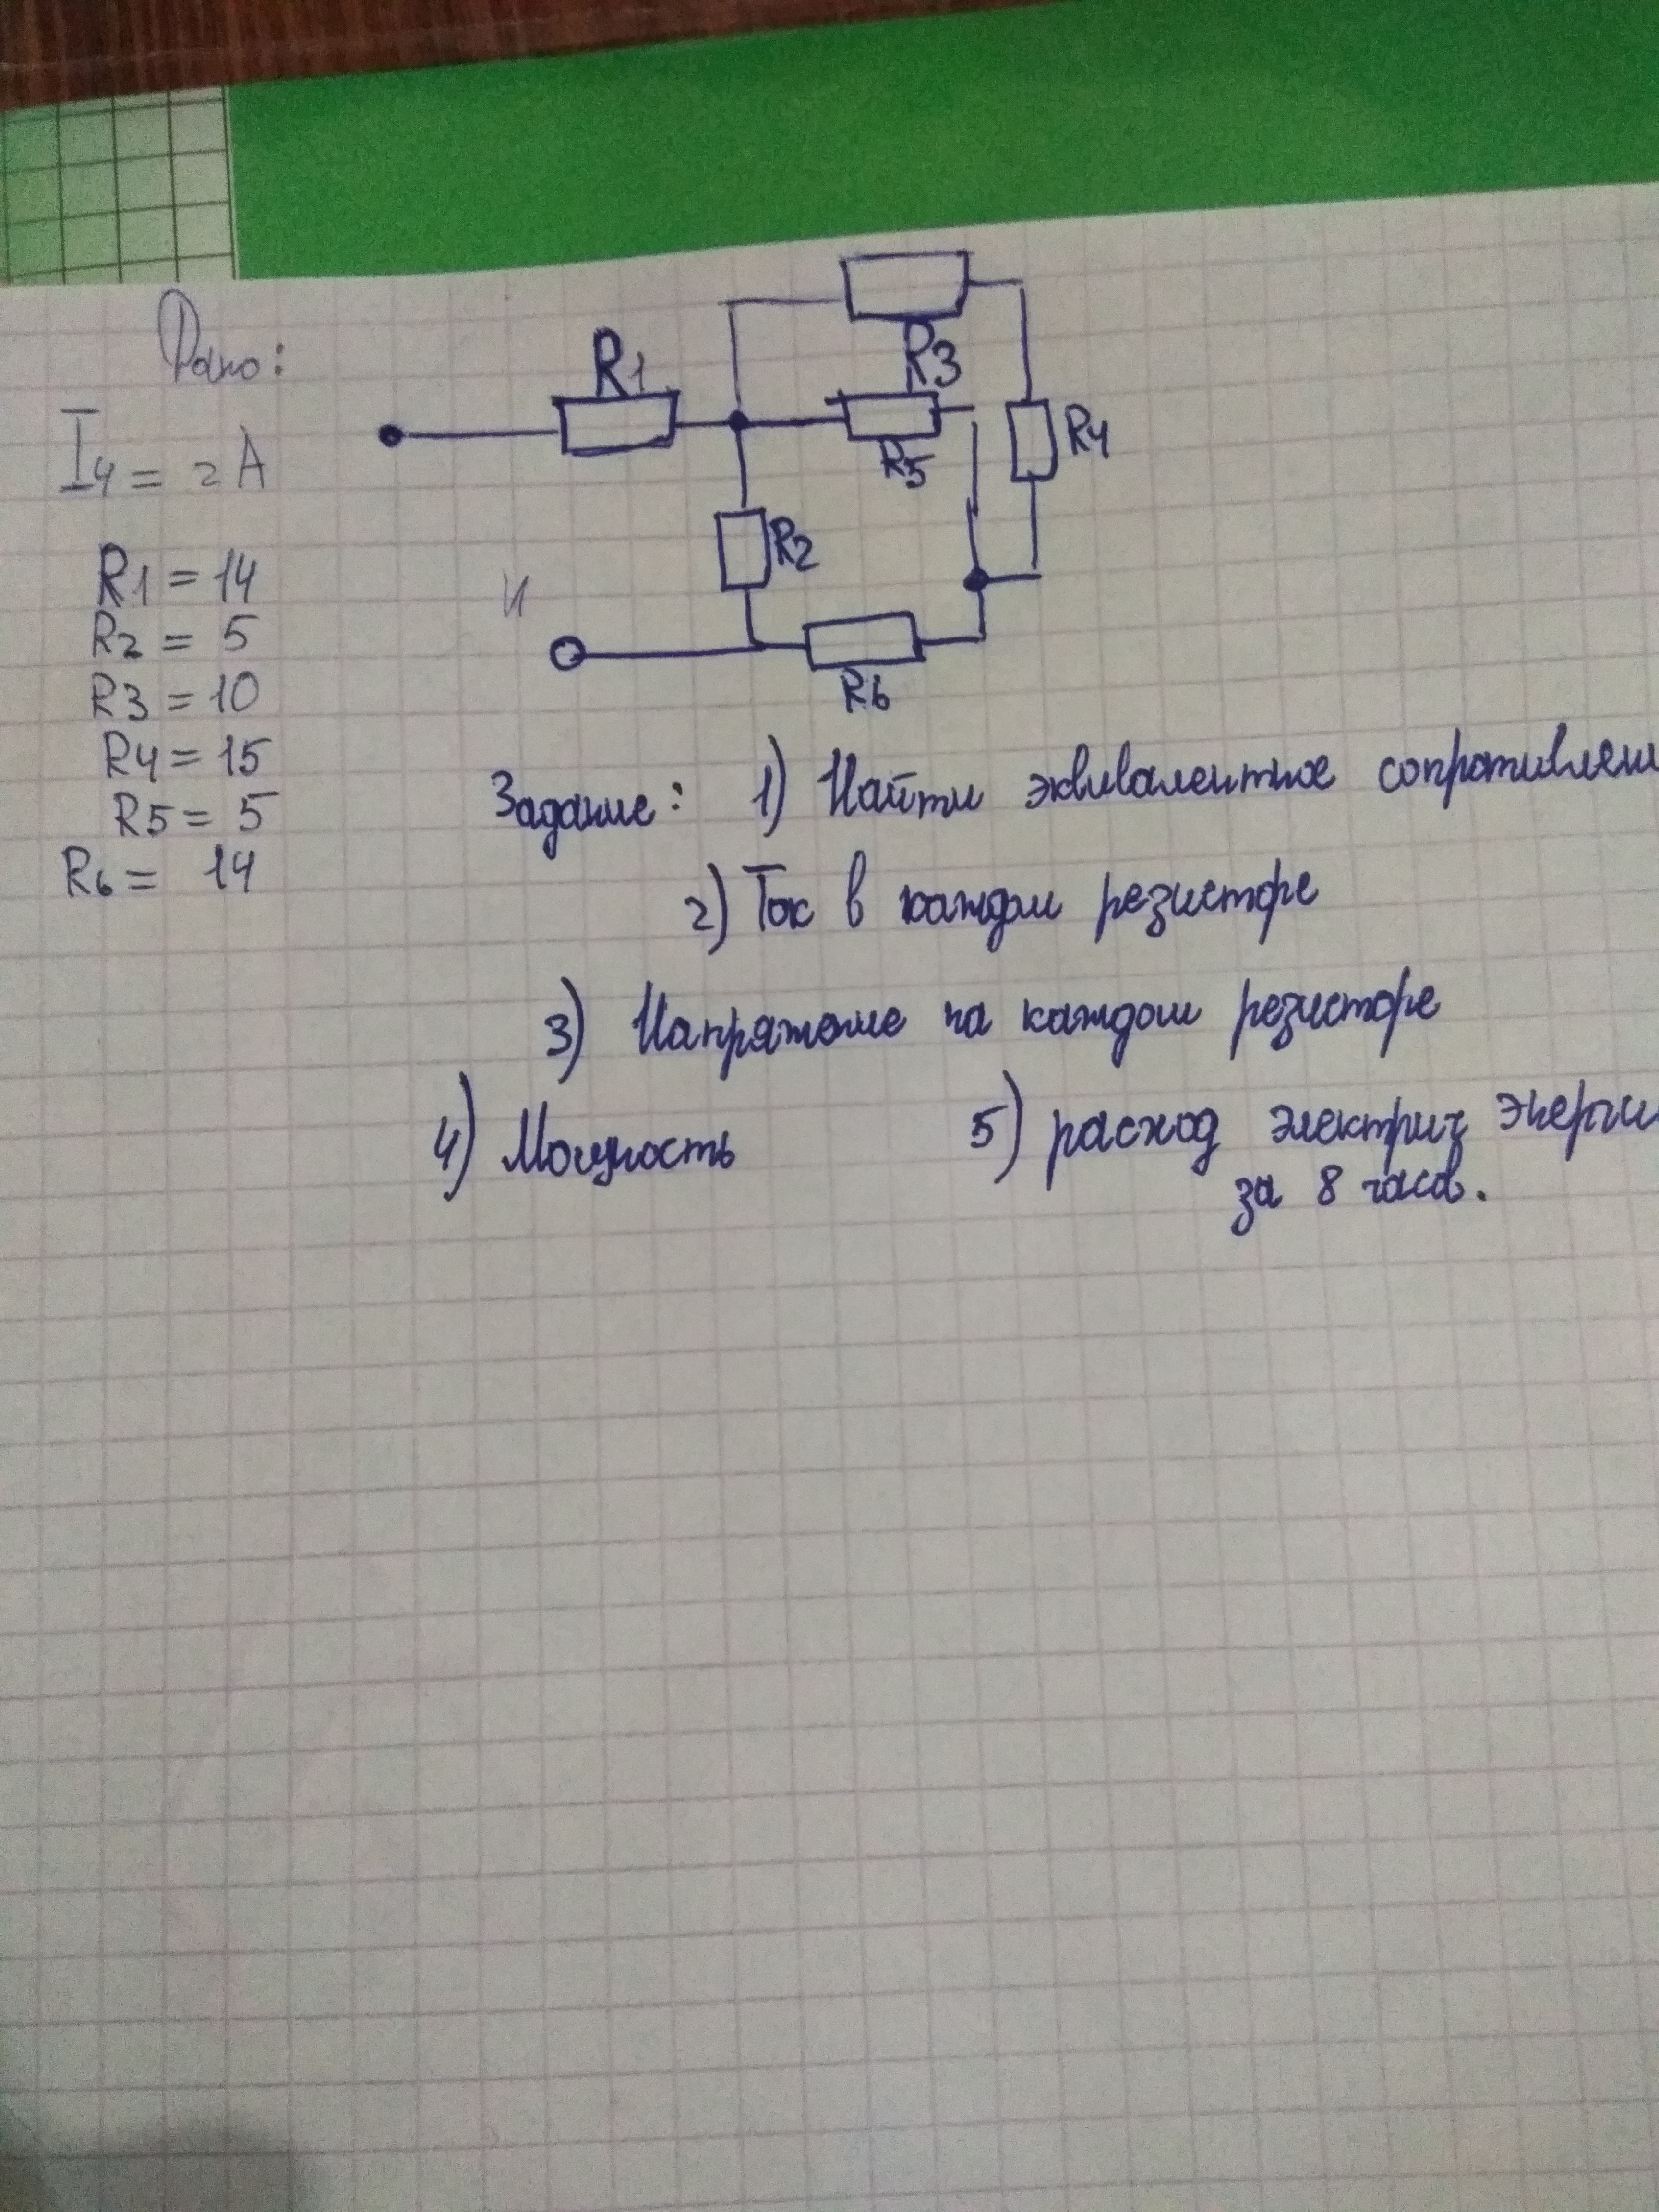 Дано:
I4 = 2A
R1 = 14
R2 = 5
R3 = 10
R4 = 15
R5 = 5
R6 = 14
R1
R3
R5
R4
R2
И
R6
Задание: 1) Найти эквивалентное сопротивлени
2) Ток в каждом резисторе
3) Напряжение на каждом резисторе
4) Мощность 5) расход электрич энерги
за 8 часов.